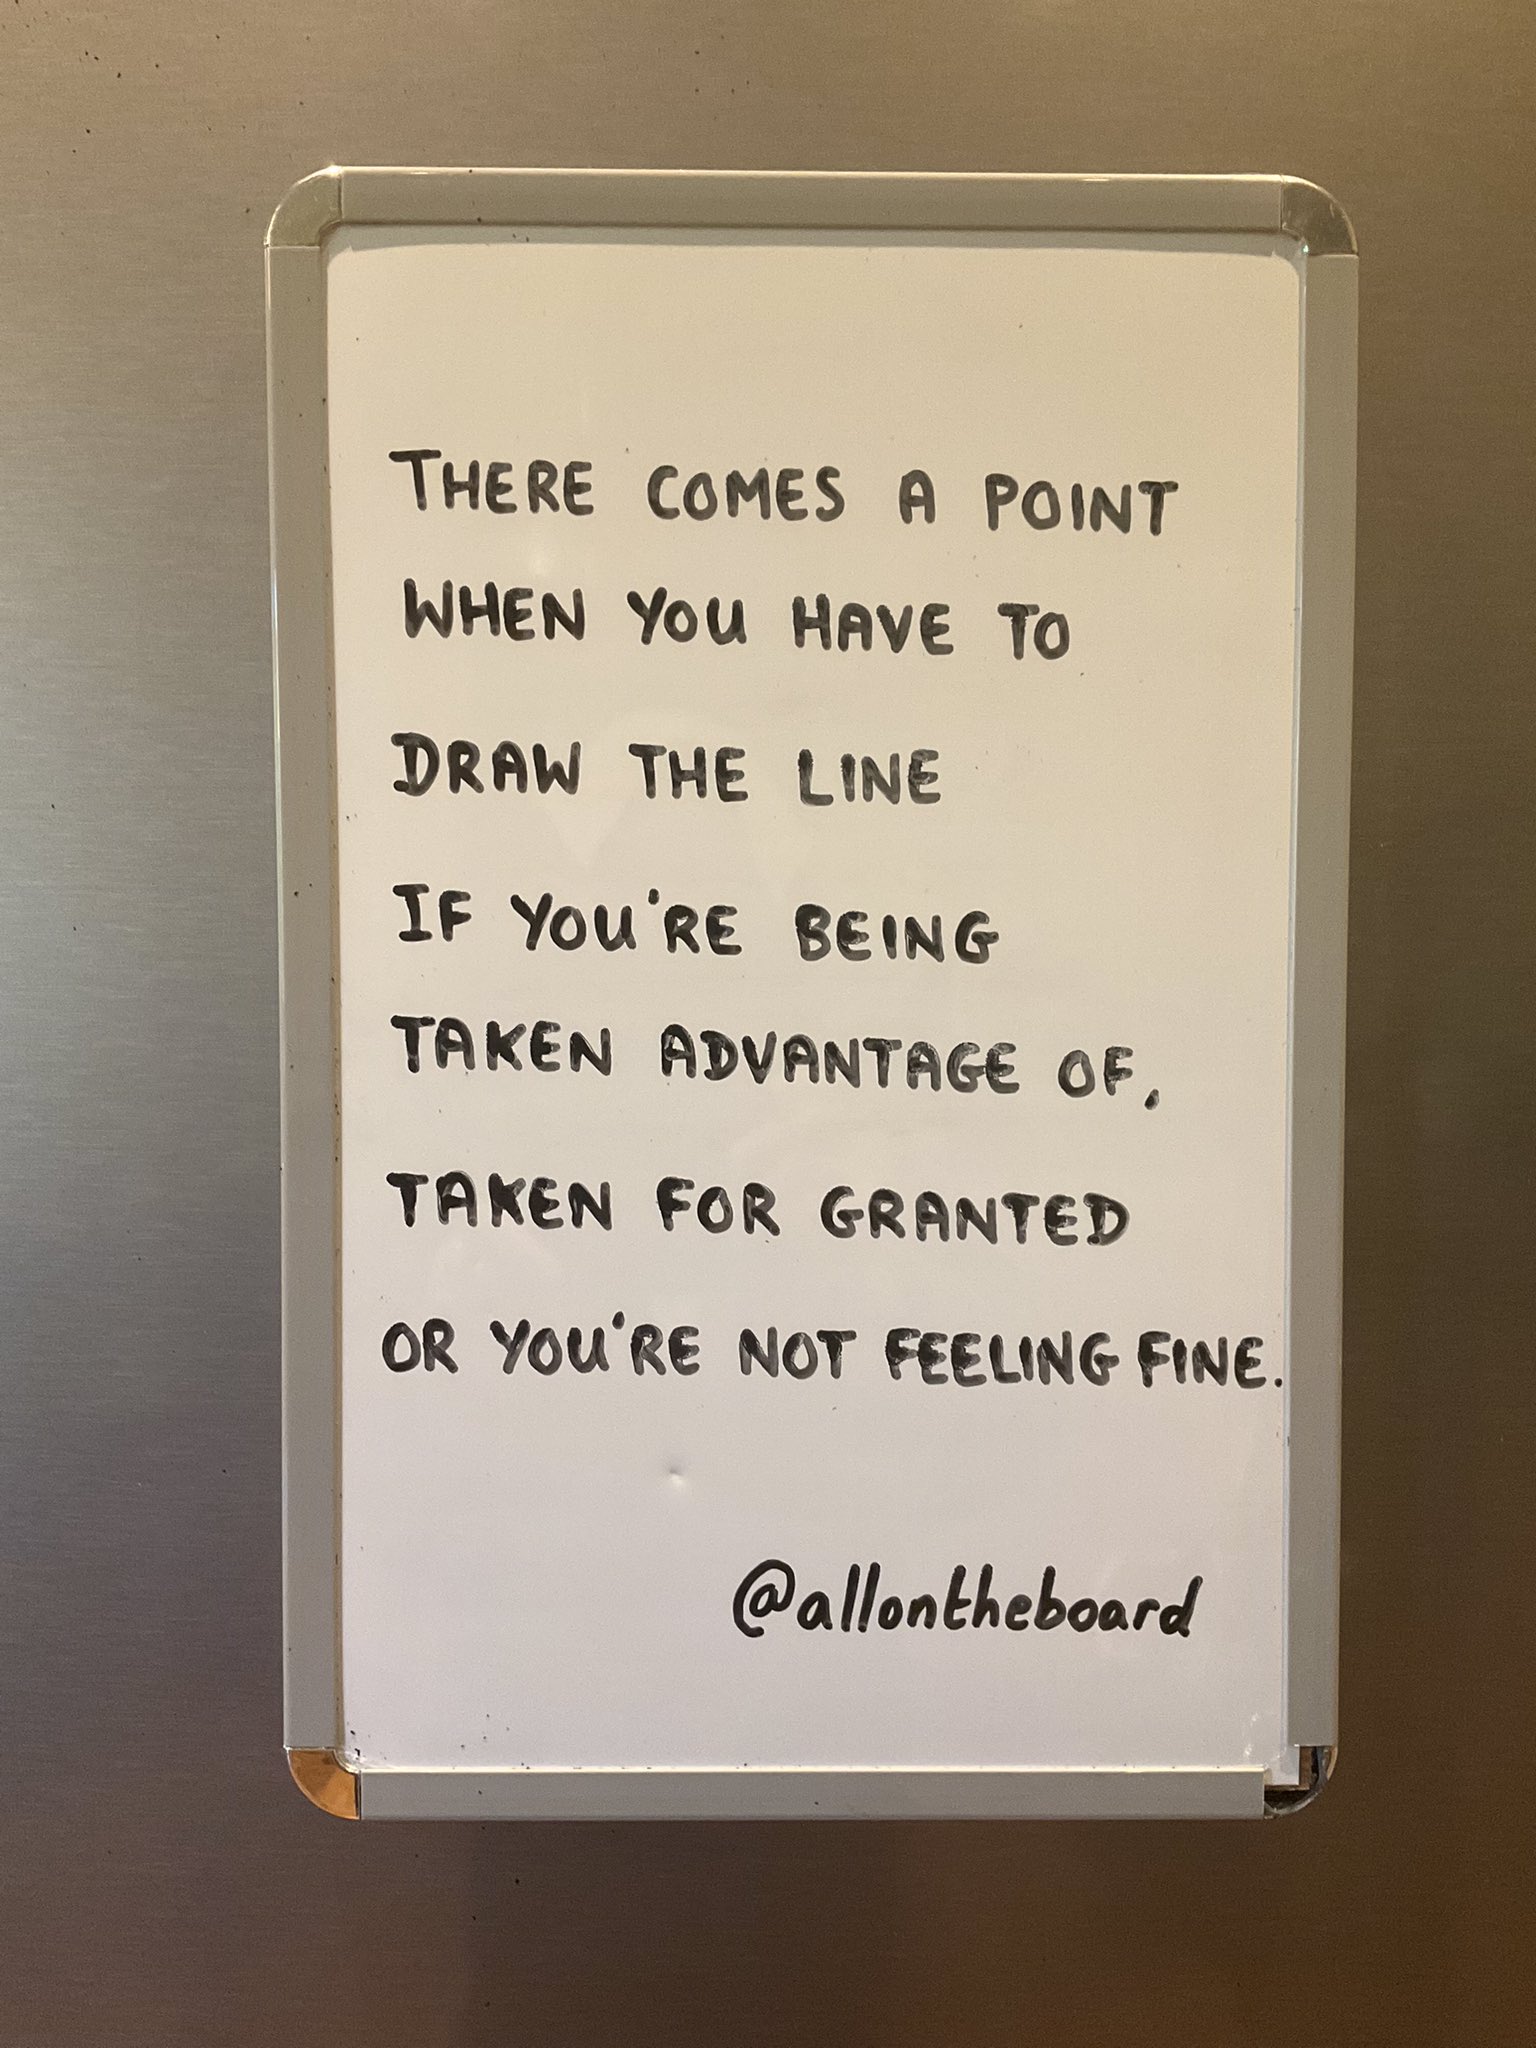 THERE COMES A POINT
WHEN YOU HAVE TO
DRAW THE LINE
IF YOU'RE BEING
TAKEN ADVANTAGE OF,
TAKEN FOR GRANTED
OR YOU'RE NOT FEELING FINE.
@allontheboard